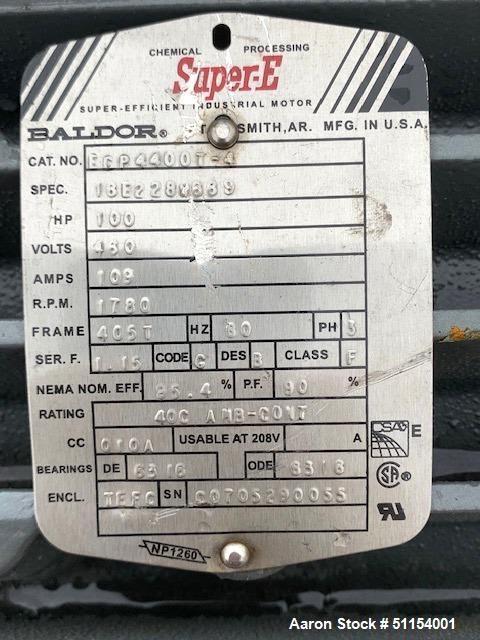 CHEMICAL PROCESSING
Super-E
SUPER-EFFICIENT INDUSTRIAL MOTOR
BALDOR® SMITH,AR. MFG. IN U.S.A.
CAT. NO. ECP4400T-4
SPEC.
HP 100
VOLTS 460
AMPS 109
R.P.M. 1780
FRAME 405T HZ 60 PH 3
SER. F. 1.15 CODE G DES B CLASS F
NEMA NOM. EFF. 95.4 % P.F. 90 %
RATING 40C AMB-CONT
CC 010A USABLE AT 208V A
BEARINGS DE 6316 ODE 6316
ENCL. TEFC SN C0705290055
NP1260
CSA® E
SA®
Aaron Stock # 51154001